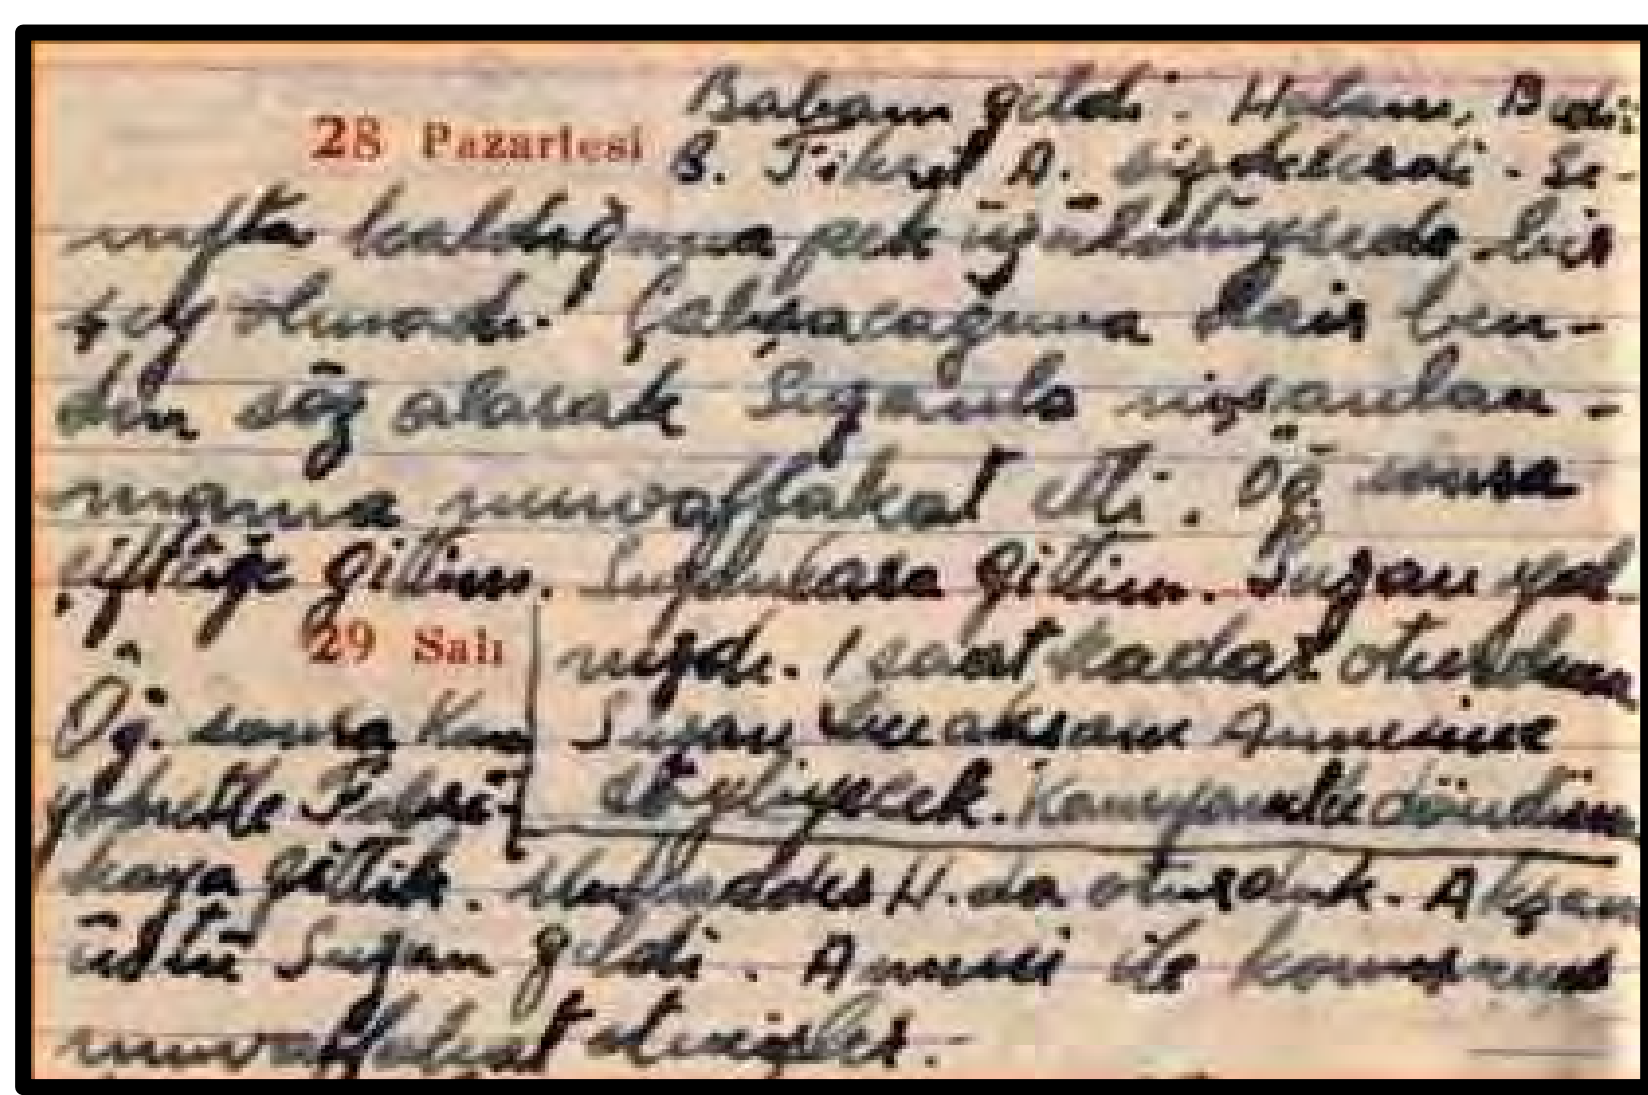 28 Pazartesi Babam geldi. Halam,
B. Fikret A. bizdelerdi. Sı-
nıfta kaldığıma pek üzüldüysede bir
şey olmadı. Çalışacağıma dair ben-
den söz alarak Suzanla nişanlan-
mama muvaffakat etti. Öğ. sonra
çiftliğe gittim. gittim. Suzan yal-
29 Salı nızdı. 1 saat kadar oturdum
Öğ. sonra
Suzan bu akşam Annesine
söyliyecek. Kamyonla döndüm
kaya gittik. Mukaddes H. da oturduk. Akşam
üstü Suzan geldi. Annesi ile konuşmuş
muvaffakat etmişler.